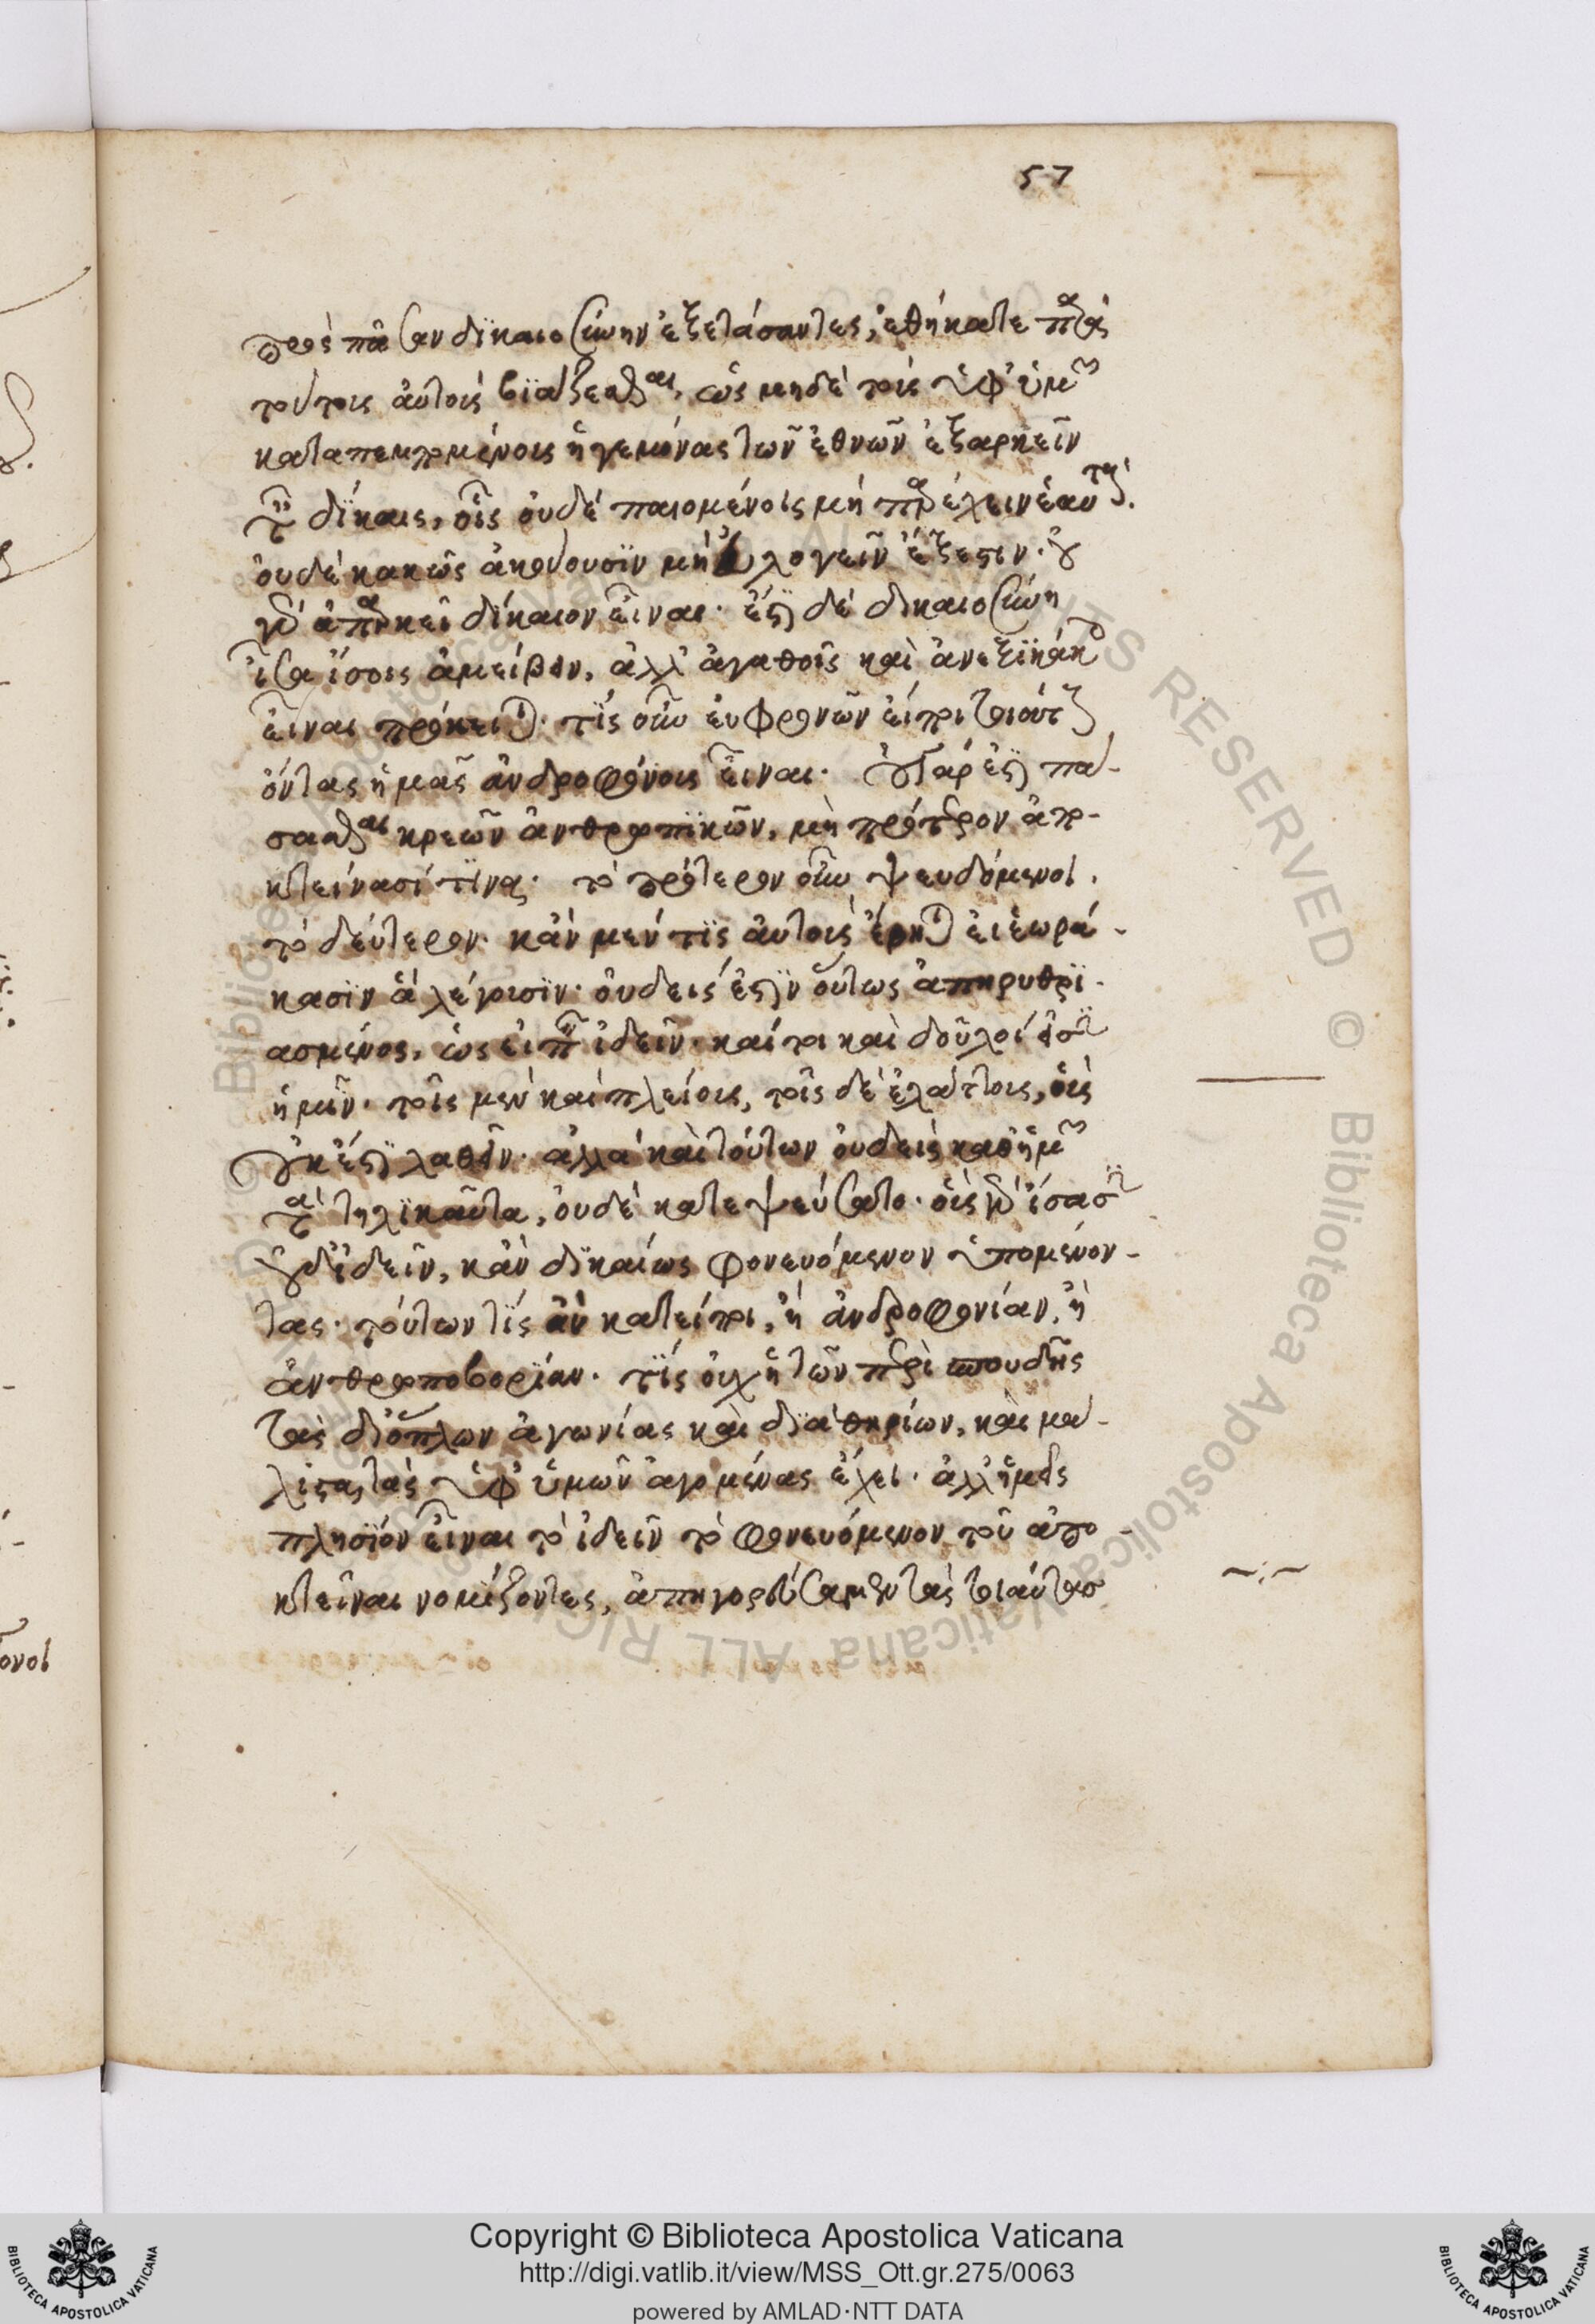 57
πρὸς πᾶσαν δϊκαιοσύνην ἐξετάσαντες, ἐθήκατε παρὰ
τούτοις αὐτοῖς βϊάζεσθαι, ὡς μηδὲ τοὺς ὑφ' ὑμῶν
καταπεμπομένοις ἡγεμόνας τῶν ἐθνῶν ἐξαρκεῖν
ταῖς δίκαις, οἷς οὐδὲ παιομένοις μὴ παρέχειν ἑαυτοὺς.
οὐδὲ κακῶς ἀκούουσϊν μὴ εὐλογεῖν ἔξεστιν. οὐ
γὰρ ἀπαρκεῖ δίκαιον εἶναι. ἔστϊ δὲ δικαιοσύνη
ἴσα ἴσοις ἀμείβειν, ἀλλ' ἀγαθοῖς καὶ ἀνεξϊκάκοις
εἶναι πρόκειται. τίς οὖν εὐφρονῶν εἴποι τοιούτους
ὄντας ἡμᾶς ἀνδροφόνοις εἶναι. οὐ γὰρ ἔστϊ πά-
σασθαι κρεῶν ἀνθρωπϊκῶν, μὴ πρότερον ἀπο-
κτείνασί τϊνας. τὸ πρότερον οὖν ψευδόμενοι.
τὸ δεύτερον. κἂν μέν τϊς αὐτοὺς ἔρηται εἰ ἑωρά-
κασϊν ἃ λέγουσϊν. οὐδεὶς ἐστϊν οὕτως ἀπηρυθρϊ-
ασμένος, ὡς εἰπεῖν ἰδεῖν. καίτοι καὶ δοῦλοί εἰσϊν
ἡμῖν. τοῖς μὲν καὶ πλείοις, τοῖς δὲ ἐλάττοις, οὓς
οὐκ ἔστϊ λαθεῖν. ἀλλὰ καὶ τούτων οὐδεὶς καθ' ἡμῶν
τὰ τηλϊκαῦτα, οὐδὲ κατεψεύσατο. οὓς γὰρ ἴσασϊν
οὐδ' ἰδεῖν, κἂν δϊκαίως φονευόμενον ὑπομένον-
τας. τούτων τίς ἂν κατείποι, ἢ ἀνδροφονίαν, ἢ
ἀνθρωποβορίαν. τϊς οὐχ ἡ τῶν περὶ σπουδῆς
τὰς δι' ὅπλων ἀγωνίας καὶ δϊὰ θηρίων, καὶ μά-
λιστα τὰς ὑφ' ὑμῶν ἀγομένας ἔχει. ἀλλ' ἡμεῖς
πλησϊόν εἶναι τὸ ἰδεῖν τὸ φονευόμενον τοῦ ἀπο-
κτεῖναι νομίζοντες, ἀπηγορεύσαμεν τὰς τοιαύτασ
Copyright © Biblioteca Apostolica Vaticana
http://digi.vatlib.it/view/MSS_Ott.gr.275/0063
powered by AMLAD·NTT DATA